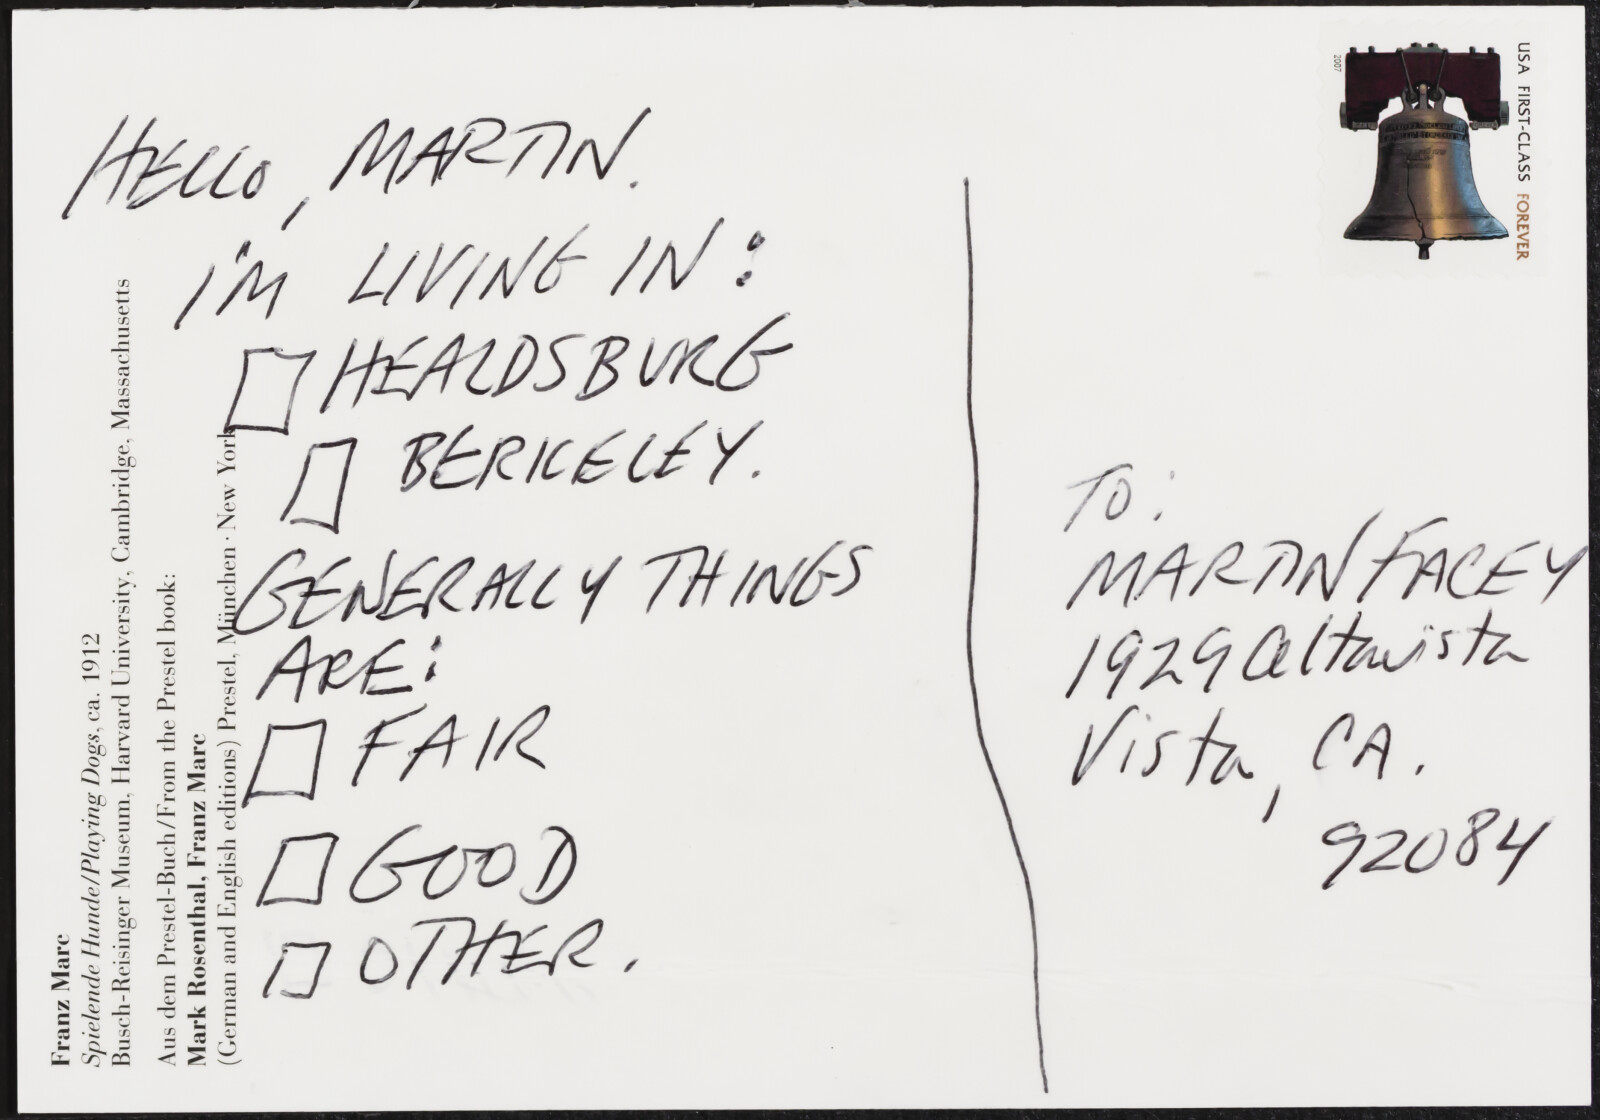 HELLO, MARTIN.
I'M LIVING IN:
HEALDSBURG
BERKELEY.
GENERALLY THINGS
ARE:
FAIR
GOOD
OTHER.
TO:
MARTIN FACEY
1929 Altavista
Vista, CA.
92084
2007
USA FIRST-CLASS FOREVER
Franz Marc
Spielende Hunde/Playing Dogs, ca. 1912
Busch-Reisinger Museum, Harvard University, Cambridge, Massachusetts
Aus dem Prestel-Buch/From the Prestel book:
Mark Rosenthal, Franz Marc
(German and English editions) Prestel, München · New York